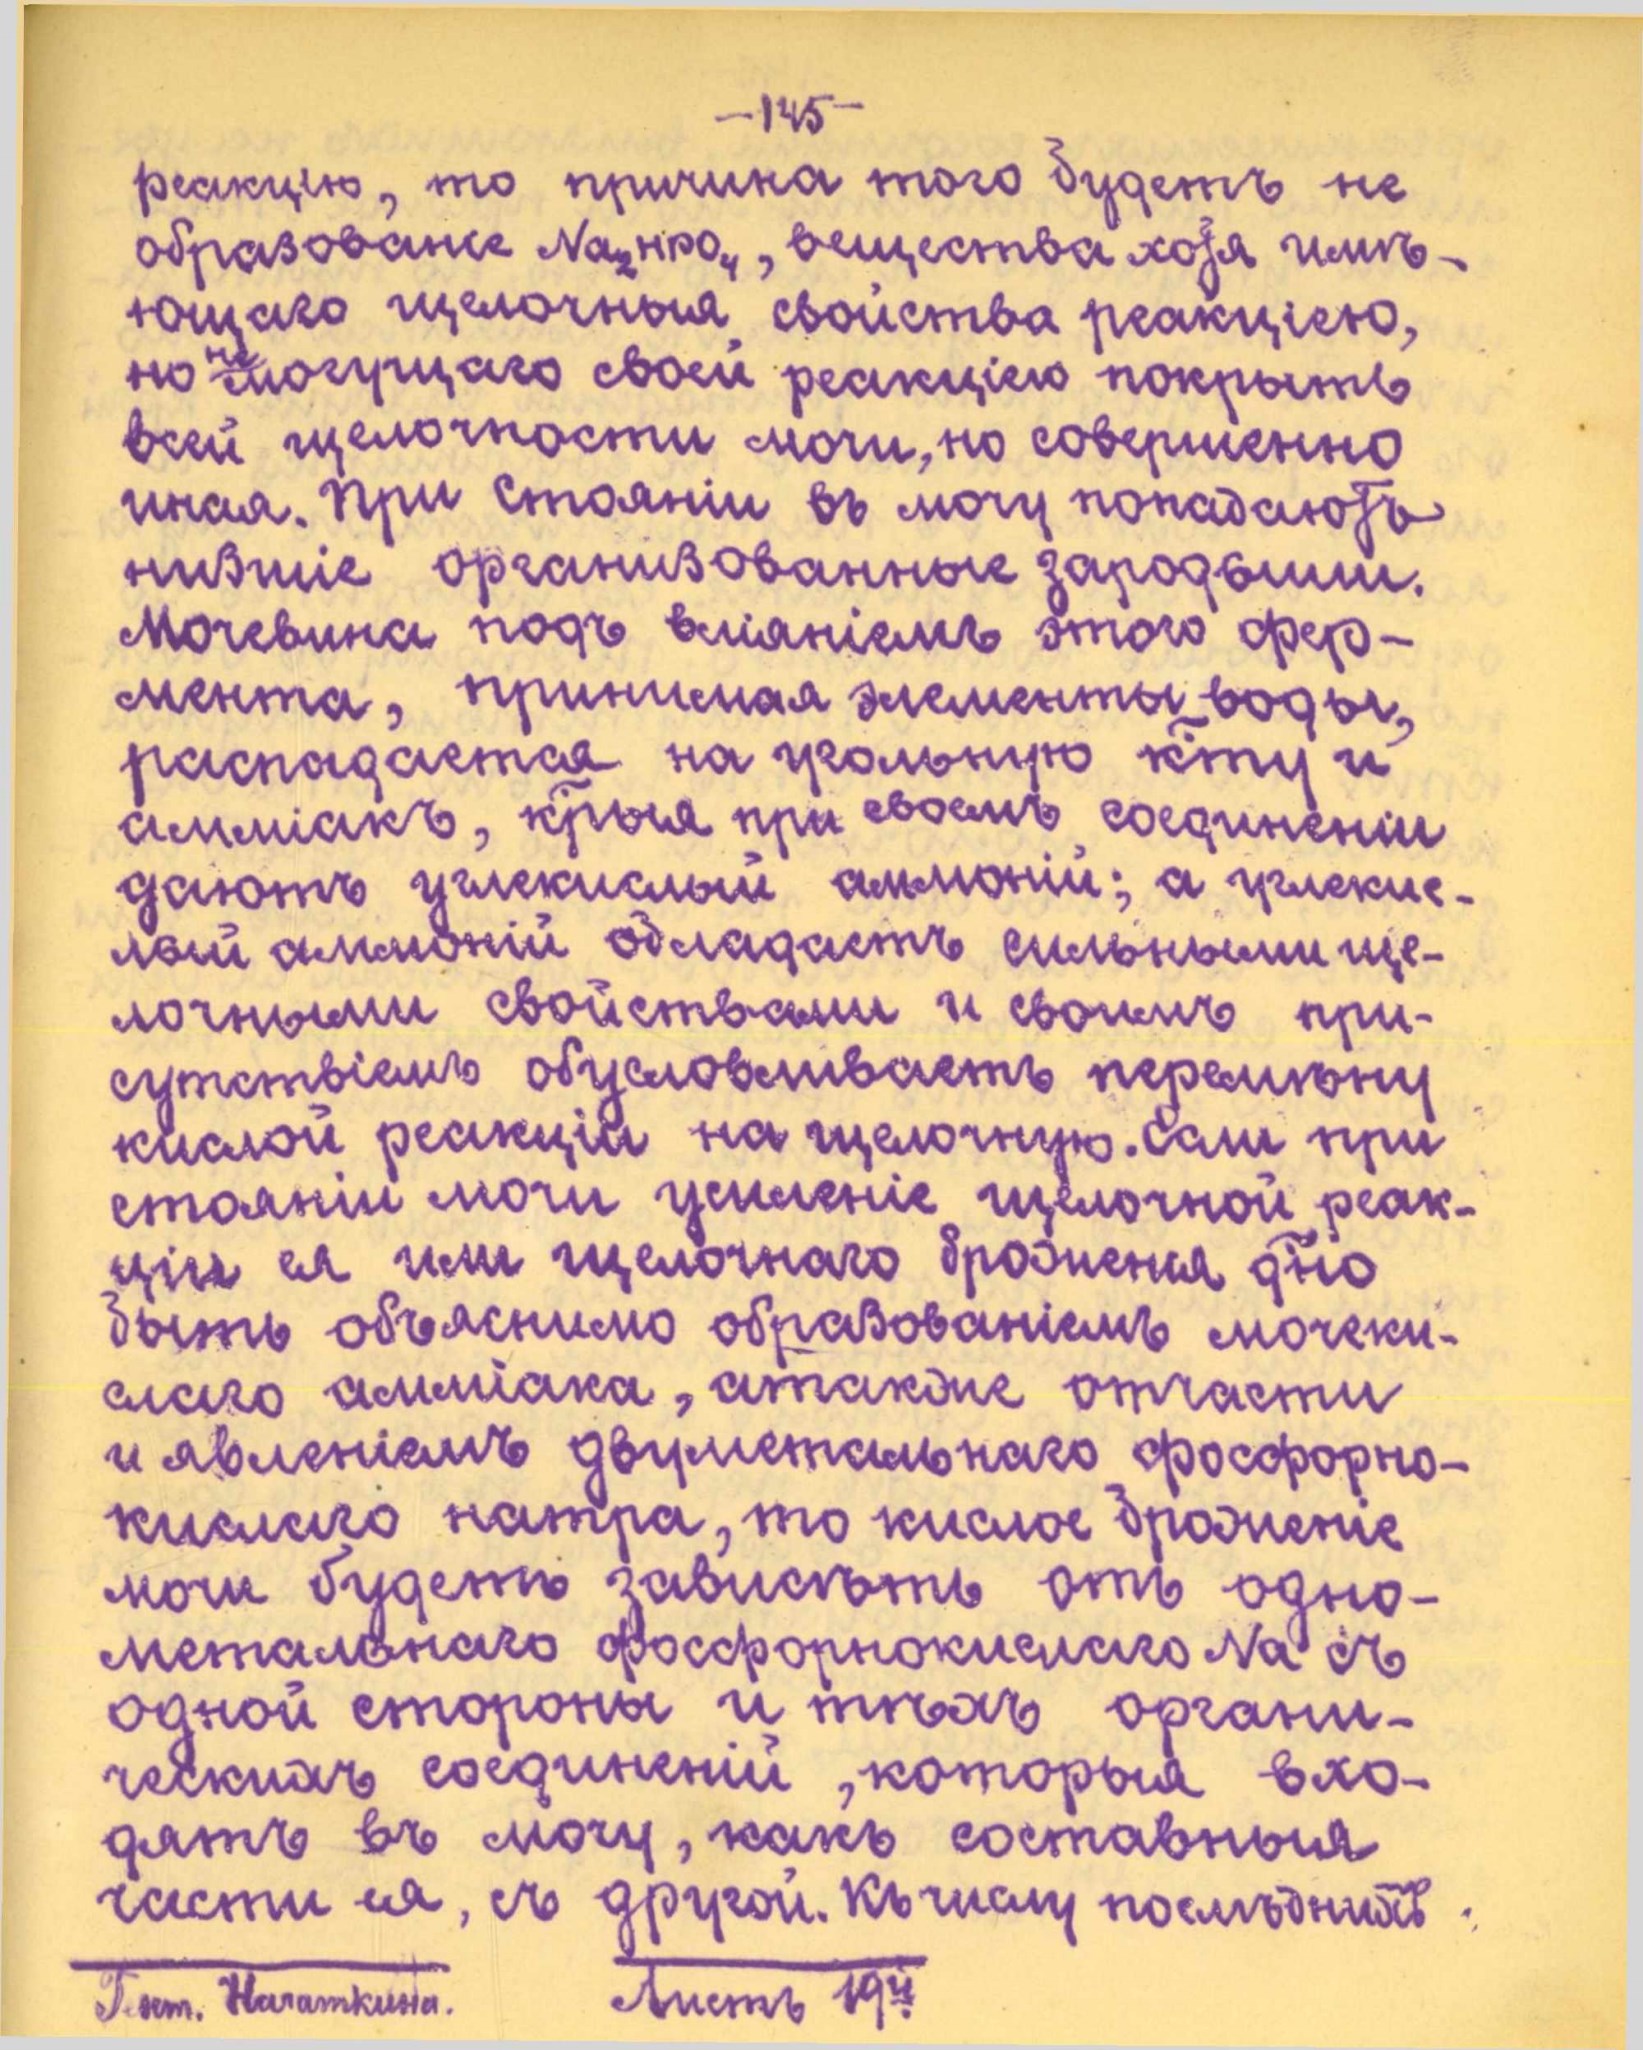 —145—
реакцію, то причина того будетъ не
образованіе Na₂HPO₄, вещества хотя имѣ-
ющаго щелочныя свойства реакціею,
но не могущаго своей реакціею покрыть
всей щелочности мочи, но совершенно
иная. При стояніи въ мочу попадаютъ
низшіе организованные зародыши.
Мочевина подъ вліяніемъ этого фер-
мента, принимая элементы воды,
распадается на угольную к̃ту и
амміакъ, к̃рыя при своемъ соединеніи
даютъ углекислый аммоній; а углекис-
лый аммоній обладаетъ сильными ще-
лочными свойствами и своимъ при-
сутствіемъ обусловливаетъ перемѣну
кислой реакціи на щелочную. Если при
стояніи мочи усиленіе щелочной реак-
ціи ея или щелочнаго броженія д̃но
быть объяснимо образованіемъ мочеки-
слаго амміака, а также отчасти
и явленіемъ двуметальнаго фосфорно-
кислаго натра, то кислое броженіе
мочи будетъ зависѣть отъ одно-
метальнаго фосфорнокислаго Na съ
одной стороны и тѣхъ органи-
ческихъ соединеній, которыя вхо-
дятъ въ мочу, какъ составныя
части ея, съ другой. Къ числу послѣднихъ
Гект. Началкина.
Листъ 19й